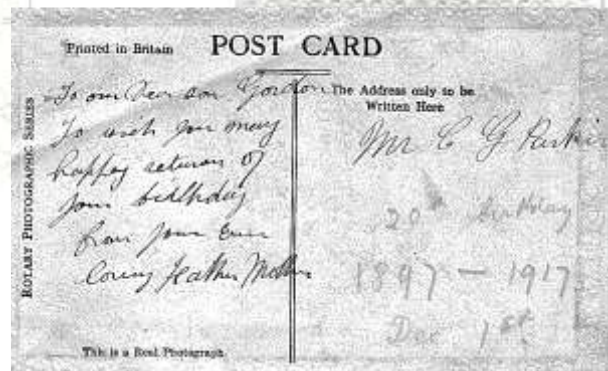 Printed in Britain
POST CARD
ROTARY PHOTOGRAPHIC SERIES
To our Dear son Gordon
To wish you many
happy returns of
your birthday
from your ever
loving Feather Mother
This is a Real Photograph.
The Address only to be
Written Here
Mr C G Parkin
20th birthday
1897 - 1917
Dec 1st